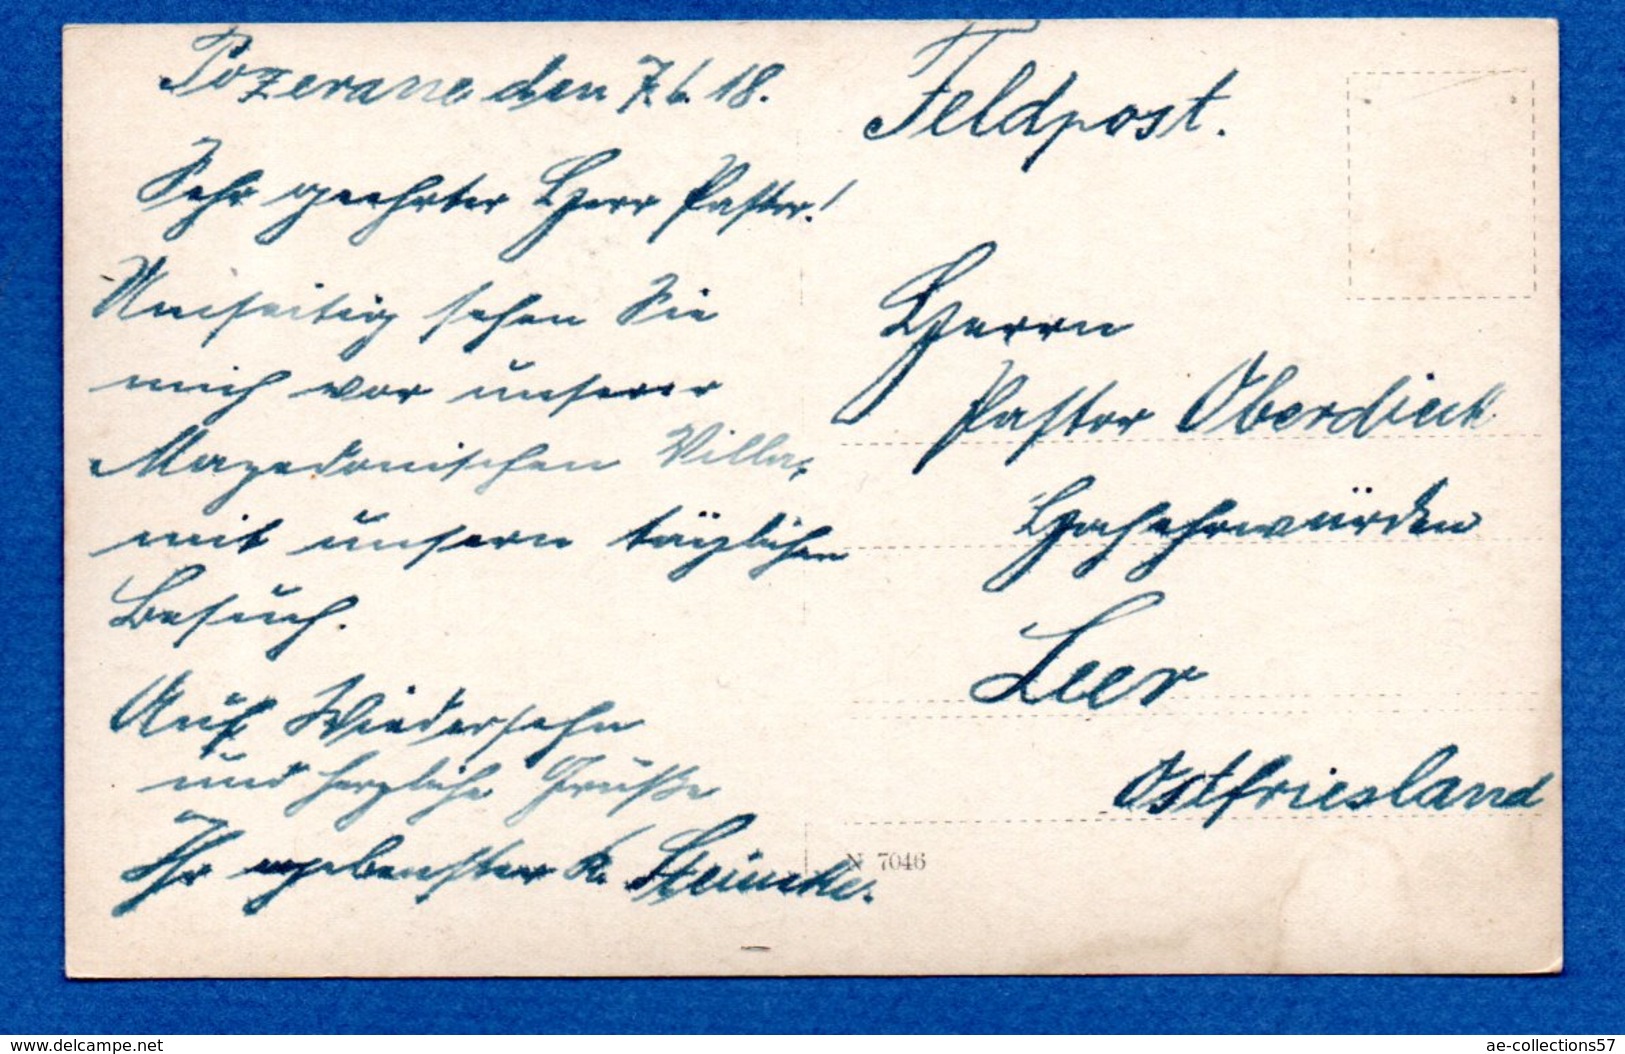 Pozerane den 7.6.18.
Sehr geehrter Herr Pastor!
Umseitig sehen Sie
mich vor unserer
Mazedonischen Villa,
mit unsern täglichen
Besuch.
Auf Wiedersehn
und herzliche Grüße
Ihr ergebenster K. Steincke.
Feldpost.
Herrn
Pastor Oberdieck
Hochehrwürden
Leer
Ostfriesland
N 7046
www.delcampe.net
ae-collections57